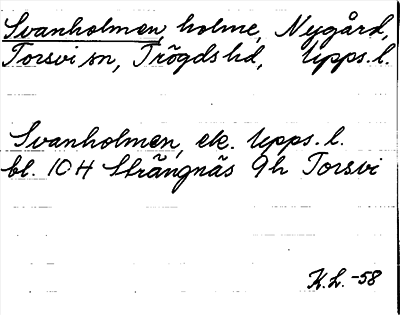 Svanholmen, holme, Nygård,
Torsvi sn, Trögds hd, Upps. l.
Svanholmen, ek. Upps. l.
bl. 104 Strängnäs 9h Torsvi
K.L. -58